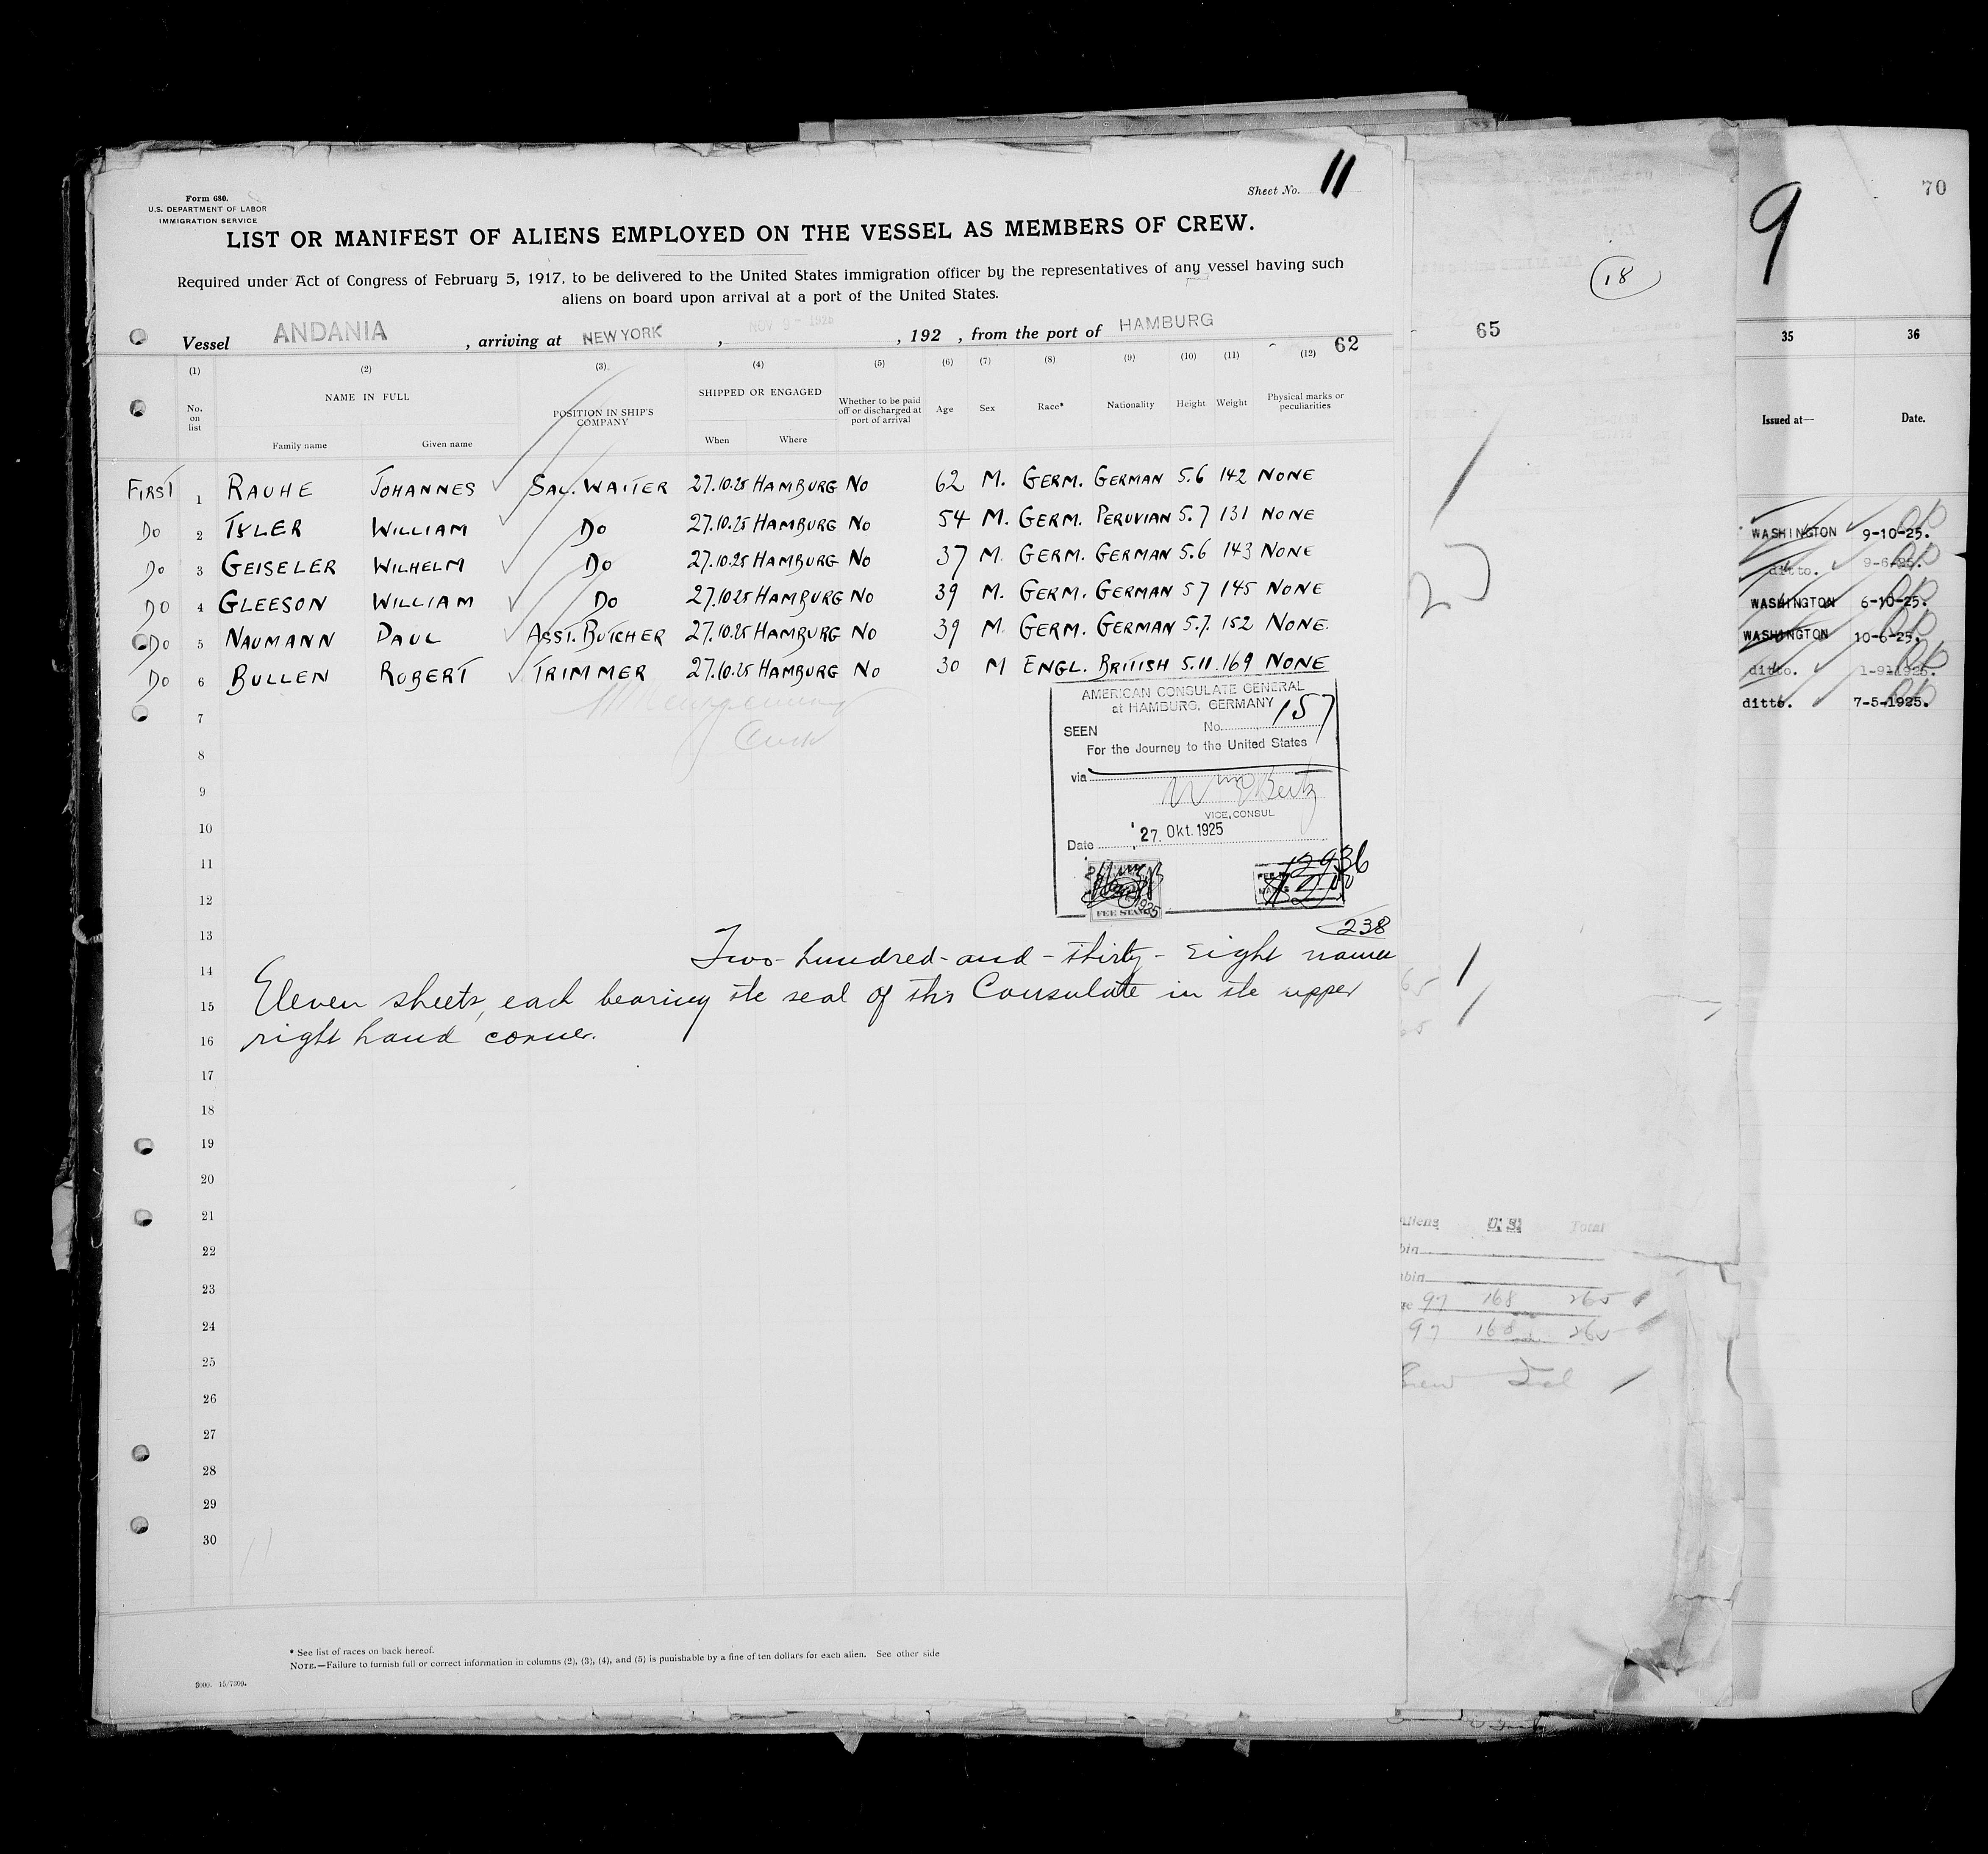 Form 680.
U.S. DEPARTMENT OF LABOR
IMMIGRATION SERVICE
Sheet No. 11
LIST OR MANIFEST OF ALIENS EMPLOYED ON THE VESSEL AS MEMBERS OF CREW.
Required under Act of Congress of February 5, 1917, to be delivered to the United States immigration officer by the representatives of any vessel having such
aliens on board upon arrival at a port of the United States.
Vessel ANDANIA , arriving at NEW YORK , NOV 9 - 1925 , 192 , from the port of HAMBURG
62
(1) (2) (3) (4) (5) (6) (7) (8) (9) (10) (11) (12)
No. on list
NAME IN FULL
Family name Given name
POSITION IN SHIP'S COMPANY
SHIPPED OR ENGAGED
When Where
Whether to be paid off or discharged at port of arrival
Age Sex Race* Nationality Height Weight Physical marks or peculiarities
FIRST 1 RAUHE JOHANNES SAL. WAITER 27.10.25 HAMBURG NO 62 M. GERM. GERMAN 5.6 142 NONE
DO 2 TYLER WILLIAM DO 27.10.25 HAMBURG NO 54 M. GERM. PERUVIAN 5.7 131 NONE
DO 3 GEISELER WILHELM DO 27.10.25 HAMBURG NO 37 M. GERM. GERMAN 5.6 143 NONE
DO 4 GLEESON WILLIAM DO 27.10.25 HAMBURG NO 39 M. GERM. GERMAN 5 7 145 NONE
DO 5 NAUMANN PAUL ASST. BUTCHER 27.10.25 HAMBURG NO 39 M. GERM. GERMAN 5.7. 152 NONE.
DO 6 BULLEN ROBERT TRIMMER 27.10.25 HAMBURG NO 30 M ENGL. BRITISH 5.11. 169 NONE
7
8
9
10
11
12
13
14
15
16
17
18
19
20
21
22
23
24
25
26
27
28
29
30
AMERICAN CONSULATE GENERAL
at HAMBURG, GERMANY
SEEN No. 157
For the Journey to the United States
via
VICE CONSUL
Date 27. Okt. 1925
FEE STAMP
12936
238
Two-hundred-and-thirty-eight names
Eleven sheets, each bearing the seal of this Consulate in the upper
right hand corner.
* See list of races on back hereof.
NOTE.—Failure to furnish full or correct information in columns (2), (3), (4), and (5) is punishable by a fine of ten dollars for each alien. See other side
65
18
Aliens U.S. Total
97 168 265
97 168 265
9
70
35 36
Issued at— Date.
WASHINGTON 9-10-25.
ditto. 9-6-25.
WASHINGTON 6-10-25.
WASHINGTON 10-6-25.
ditto. 1-9-1925.
ditto. 7-5-1925.